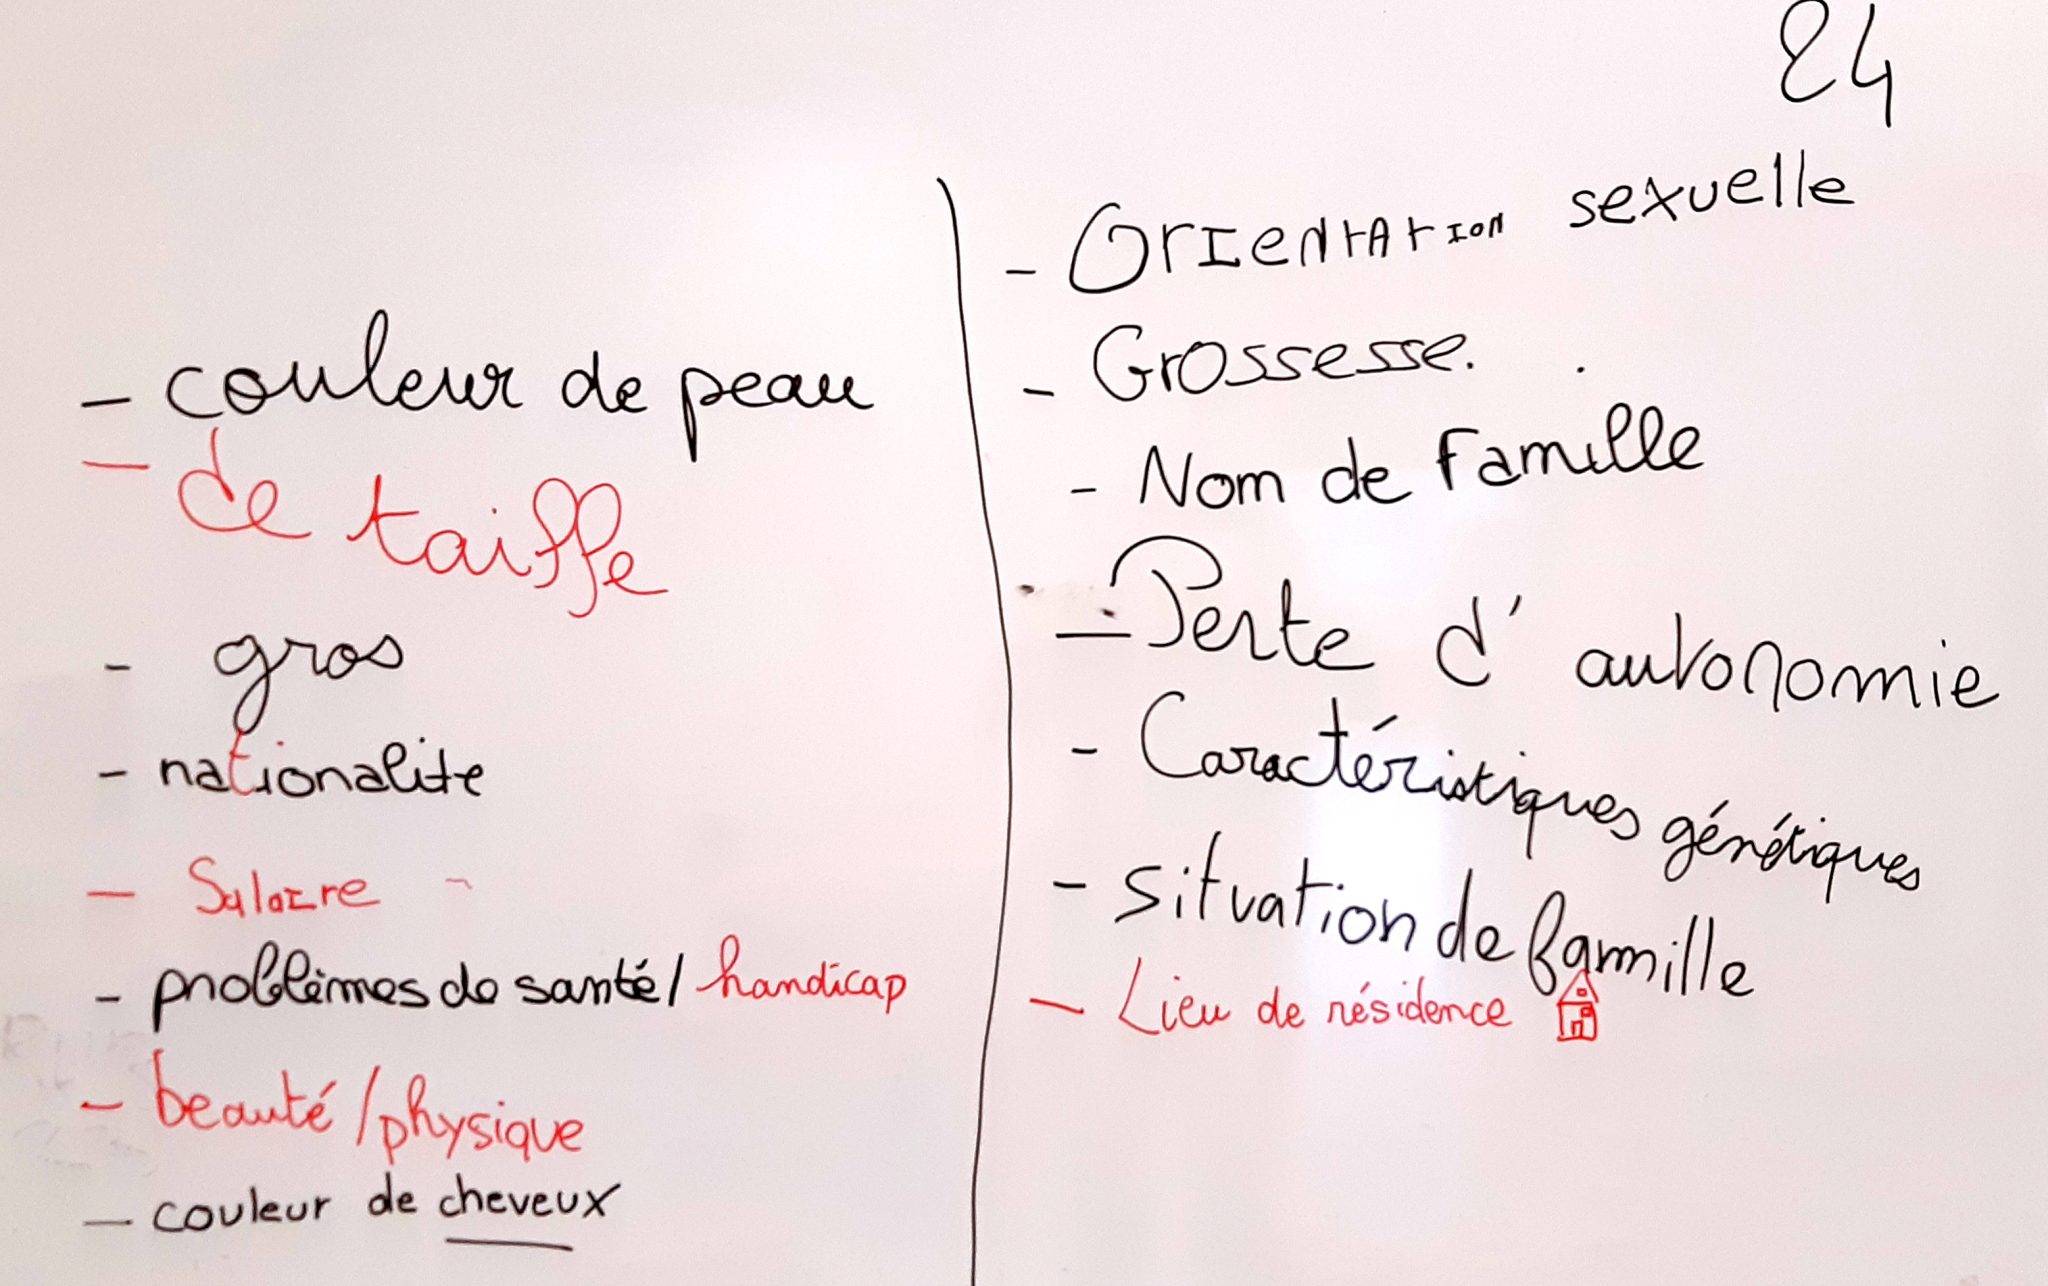 24
- couleur de peau
- de taiffe
- gros
- nationalite
- Salaire
- problèmes de santé/ handicap
- beauté/physique
- couleur de cheveux
- Orientation sexuelle
- Grossesse.
- Nom de Famille
- Perte d'autonomie
- Caractéristiques génétiques
- situation de famille
- Lieu de résidence